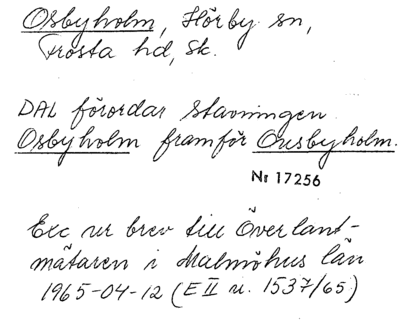 Osbyholm, Hörby sn,
Frosta hd, Sk.
DAL förordar stavningen
Osbyholm framför Onsbyholm.
Nr 17256
Exc ur brev till Överlant-
mätaren i Malmöhus län
1965-04-12 (E II u. 1537/65)